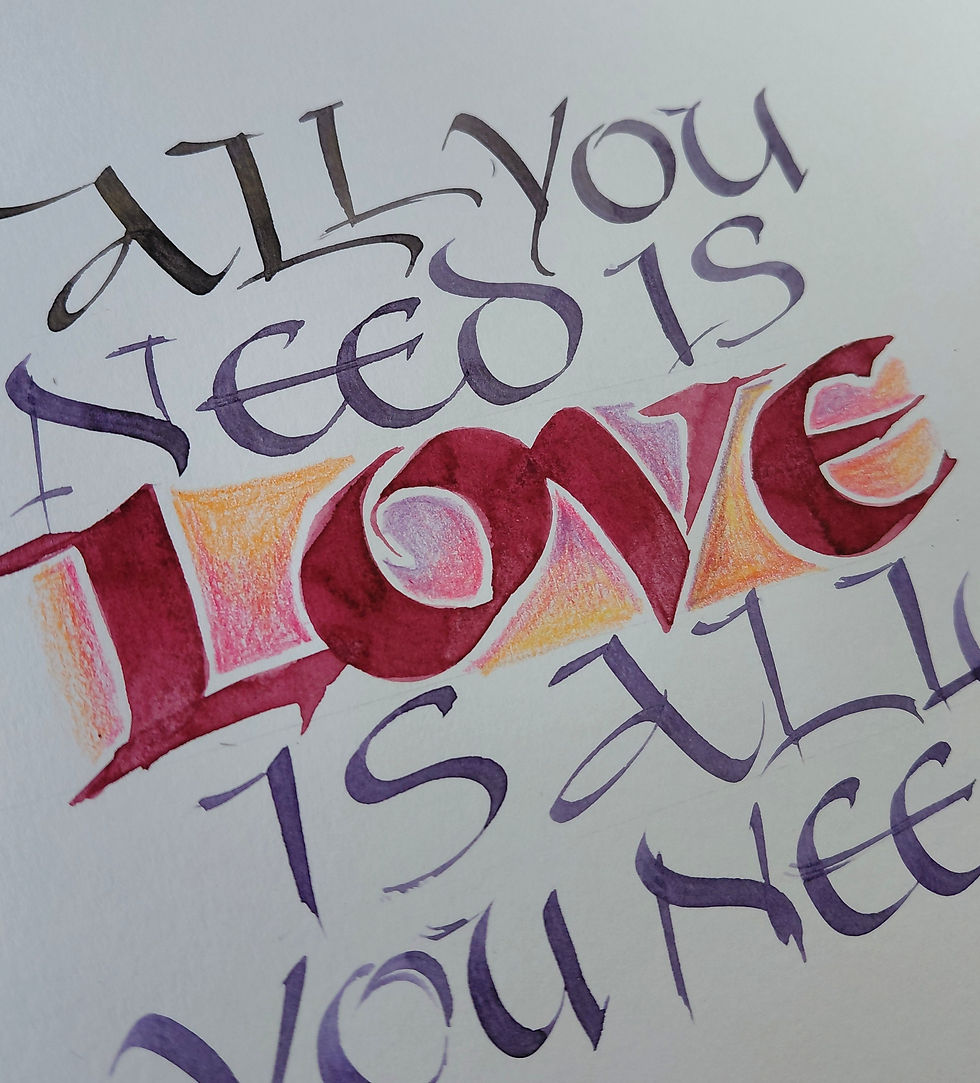 ALL YOU
NEED IS
LOVE
IS ALL
YOU NEE